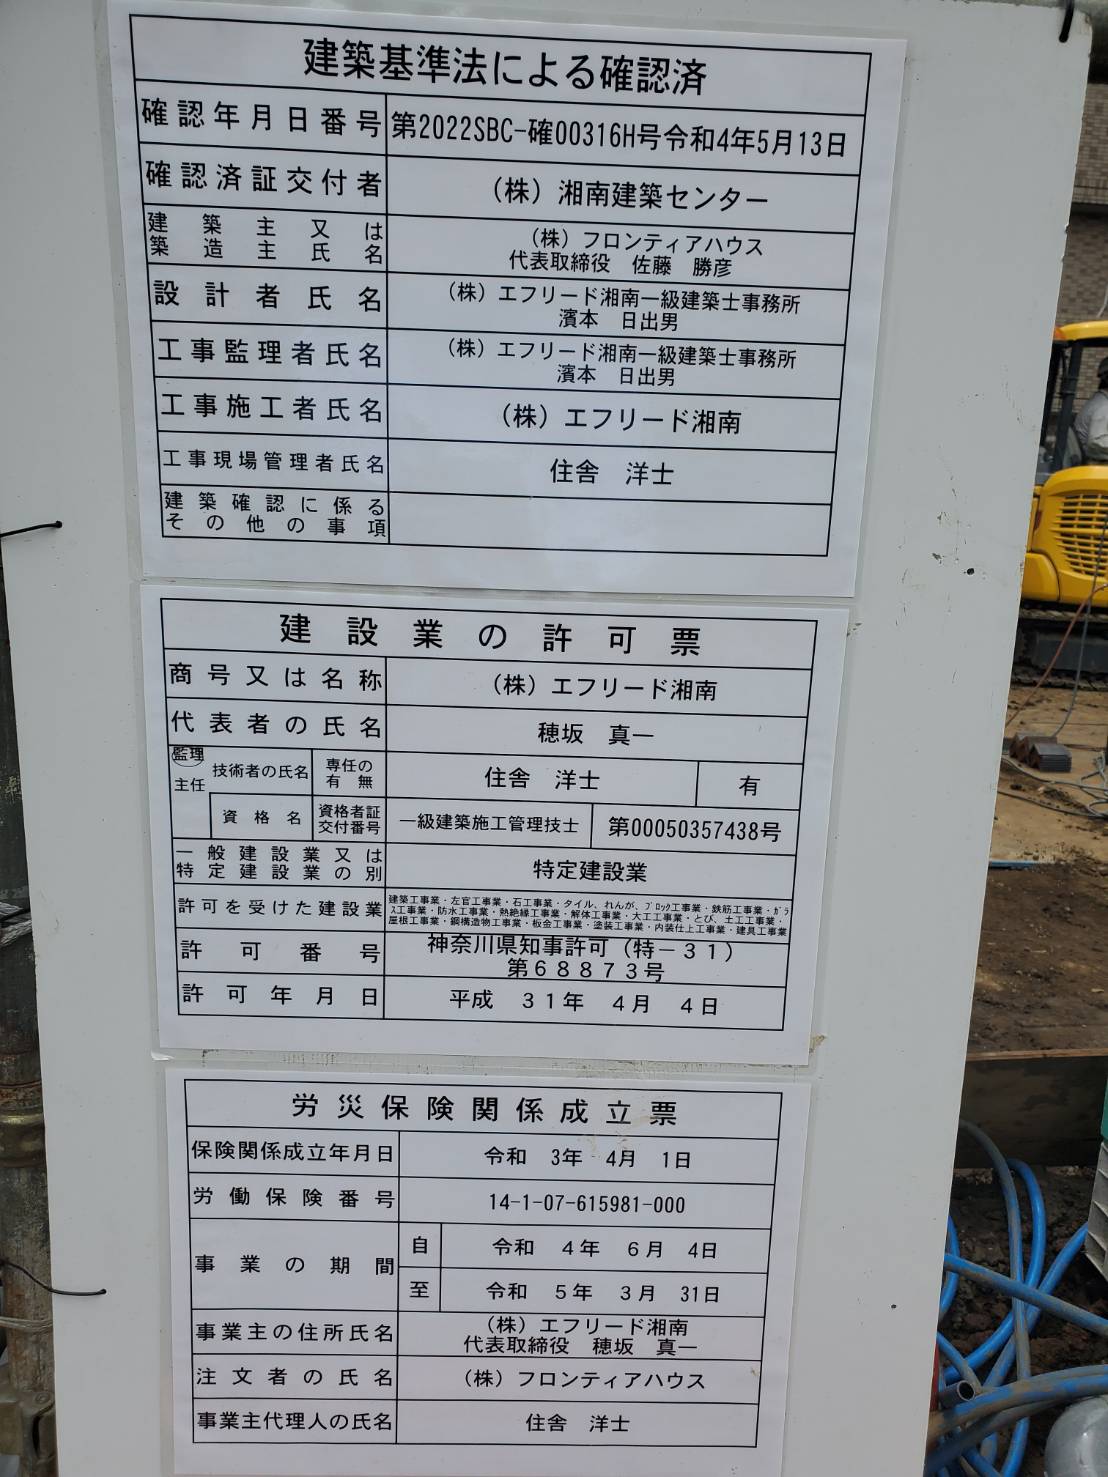 建築基準法による確認済
確認年月日番号 第2022SBC-確00316H号令和4年5月13日
確認済証交付者 （株）湘南建築センター
建築主又は
築造主氏名
（株）フロンティアハウス
代表取締役　佐藤　勝彦
設計者氏名
（株）エフリード湘南一級建築士事務所
濱本　日出男
工事監理者氏名
（株）エフリード湘南一級建築士事務所
濱本　日出男
工事施工者氏名 （株）エフリード湘南
工事現場管理者氏名 住舎　洋士
建築確認に係る
その他の事項
建設業の許可票
商号又は名称 （株）エフリード湘南
代表者の氏名 穂坂　真一
監理
主任
技術者の氏名
専任の
有無
住舎　洋士 有
資格名
資格者証
交付番号
一級建築施工管理技士 第00050357438号
一般建設業又は
特定建設業の別
特定建設業
許可を受けた建設業
建築工事業・左官工事業・石工事業・タイル、れんが、ブロック工事業・鉄筋工事業・ガラ
ス工事業・防水工事業・熱絶縁工事業・解体工事業・大工工事業・とび、土工工事業・
屋根工事業・鋼構造物工事業・板金工事業・塗装工事業・内装仕上工事業・建具工事業
許可番号
神奈川県知事許可（特－３１）
第６８８７３号
許可年月日 平成　３１年　４月　４日
労災保険関係成立票
保険関係成立年月日 令和　3年　4月　1日
労働保険番号 14-1-07-615981-000
事業の期間
自 令和　４年　６月　4日
至 令和　５年　３月　31日
事業主の住所氏名
（株）エフリード湘南
代表取締役　穂坂　真一
注文者の氏名 （株）フロンティアハウス
事業主代理人の氏名 住舎　洋士